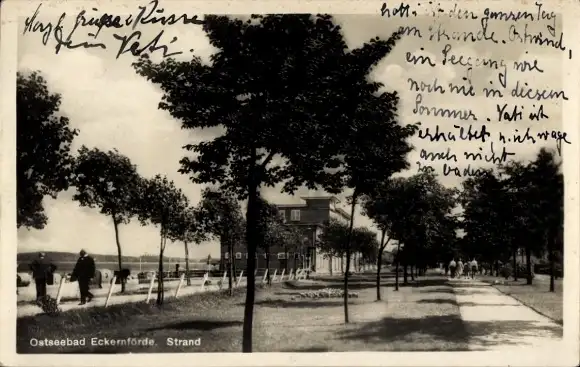 Herzl. Grüße u. Küsse
dein Vati
Hotti ist den ganzen Tag
am Strande. Ostwind,
ein Seegang wie
noch nie in diesem
Sommer. Vati ist
erkältet u. ich wage
auch nicht
zu baden
Ostseebad Eckernförde. Strand